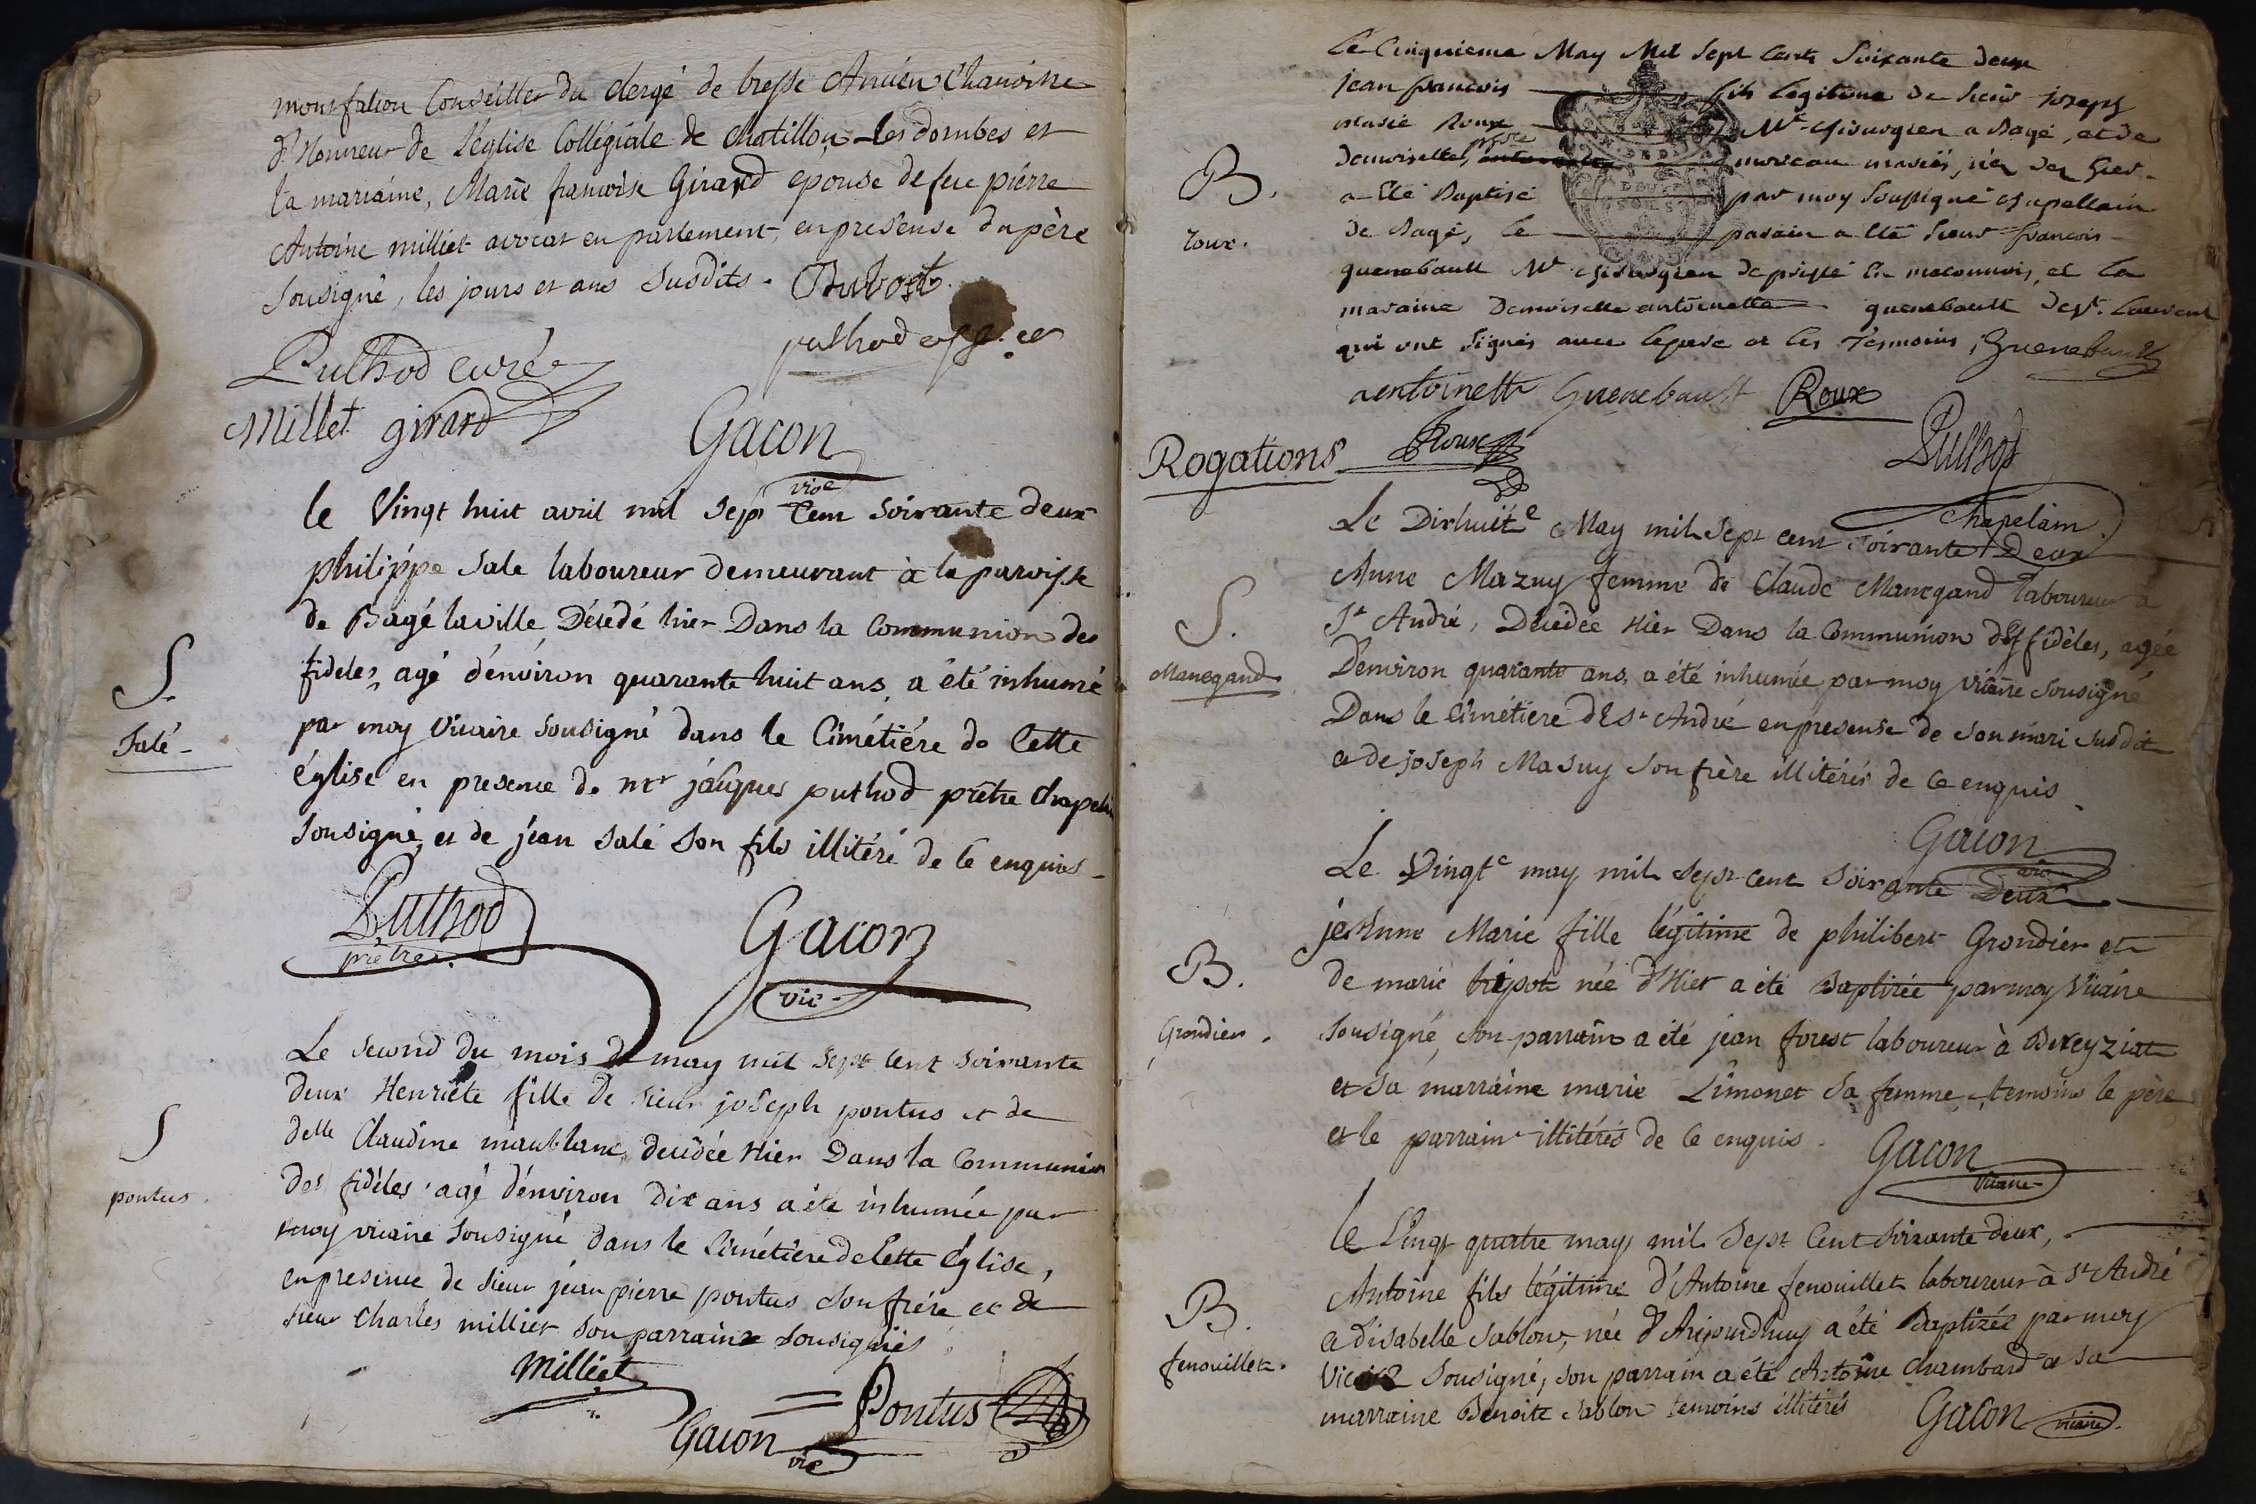 montfalcon Conseiller du clergé de bresse Ancien Chanoine
d'Honneur de l'église Collégiale de Chatillon Les dombes et
la marraine, Marie françoise Girard epouse de feu pierre
Antoine milliet avocat en parlement, en presense du père
sousigné, les jours et ans susdits. Dubost
puthod
Puthod curé
Millet girard
Gacon
vice
le Vingt huit avril mil Sept Cent soixante deux
philippe Sale laboureur demeurant à la paroisse
de Bagé la ville, Décédé hier Dans la Communion des
fideles, agé d'énviron quarante huit ans, a été inhumé
S.
par moy Vicaire sousigné dans le Cimétiére de Cette
Salé
église en presence de mr jâcques puthod prêtre Chapelin
sousigné, et de jéan salé son fils illitéré de ce enquis
Puthod
prêtre.
Gacon
vic
Le second du mois de may mil sept cent soixante
deux Henriete fille de sieur joseph pontus et de
S
delle Claudine maublanc, décédée Hier Dans la Communion
pontus.
des fidèles agé d'énviron Dix ans a été inhumée par
moy vicaire sousigné dans le Cimétière de Cette église,
en presence de sieur jéan pierre pontus son frére et de
sieur Charles millier son parrain sousignés
Milliet
Pontus
Gacon
vic
Le Cinquieme May Mil Sept Cents Soixante deux
jean francois fils legitime de sieur joseph
marie Roux Mr. chirurgien a Bagé, et de
demoiselle moreau mariés, né hier
B.
a Eté Baptisé par moy soussigné chapellain
roux.
de Bagé, le parain a Eté sieur francois
guenebault Mr chirurgien de prissé En maconnois, et la
maraine Demoiselle antoinette guenebault de st. Laurent
qui ont signés avec le pere et les Témoins, Guenebault
antoinette Guenebault Roux
Rogations
Roux
Puthod
Chapelain.
Le Dixhuite May mil Sept cent soixante Deux
Anne Mazuy femme de Claude Manegand laboureur a
S.
St André, Décédée Hier Dans la Communion des fidèles, agée
Manegand
D'environ quarante ans, a été inhumée par moy vicaire sousigné
Dans le Cimétiere de St André en presense de son mari susdit
et de joseph Masuy son frère illitérés de ce enquis
Gacon
vic
Le Vingte may mil sept cent soixante Deux
jeanne Marie fille légitime de philibert Grondier et
B.
de marie née d'Hier a été Baptizée par moy vicaire
Grondier.
sousigné, son parrain a été jean forest laboureur à Bereyziat
et sa marraine marie Limonet sa femme, temoins le père
et le parrain illitérés de ce enquis.
Gacon
vicaire
le Vingt quatre may mil Sept Cent soixante deux,
Antoine fils légitime d'Antoine fenouillet laboureur à St André
B.
et d'isabelle Sablon, née d'Aujourdhuy a été Baptizée par moy
fenouillet.
Vicaire sousigné, son parrain a été Antoine Chambard et sa
marraine Benoite Sablon temoins illitérés
Gacon vicaire